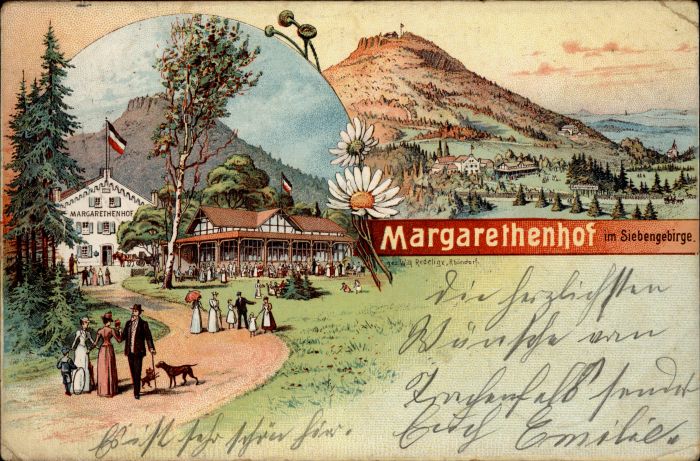 MARGARETHENHOF
Margarethenhof im Siebengebirge.
gez. Wilh.
Die herzlichsten
Wünsche vom
Drachenfels sendet
Euch Emilie.
Es ist sehr schön hier.